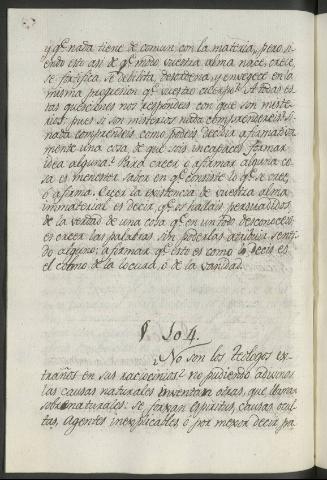 y qe nada tiene de comun con la materia, pero si-
endo esto asi de qe modo vuestra alma nace, crece,
se fortifica, se debilita, desordena, y envegece en la
misma progresion qe vuestro cuerpo? A todas es-
tas questiones nos respondeis con que son miste-
rios: pues si son misterios nada comprendereis: si
nada comprendeis como podeis decidir afirmativa-
mente una cosa de que sois incapaces formar
idea alguna? Para creer o afirmar alguna co-
sa es menester saber en qe consiste lo qe se cree,
ó afirma. Creer la existencia de vuestra alma
immaterial es decir qe os hallais persuadidos
de la verdad de una cosa qe en un todo desconoceis
es creer las palabras sin poderlas atribuir senti-
do alguno; afirmar qe esto es como lo decis es
el colmo de la locura, ó de la vanidad.
§ 104.
¿No son los Teologos ex-
traños en sus raciocinios? no pudiendo adivinar
las causas naturales inventan otras, que llaman
sobrenaturales: se forxan Espiritus, causas ocul-
tas, Agentes inexplicables ó por mexor decir pa-